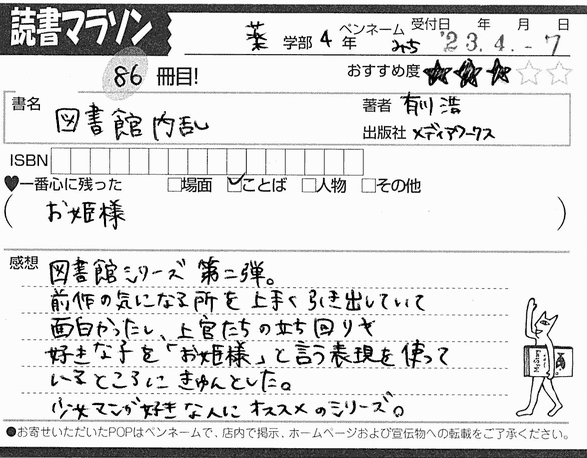 読書マラソン
薬 学部 4 年 ペンネーム みち 受付日 年 月 日
'23.4.-7
86 冊目! おすすめ度 ★★★☆☆
書名 図書館内乱
著者 有川 浩
出版社 メディアワークス
ISBN
♥一番心に残った □場面 ☑ことば □人物 □その他
( お姫様 )
感想 図書館シリーズ 第二弾。
前作の気になる所を上手く引き出していて
面白かったし、上官たちの立ち回りや
好きな子を「お姫様」と言う表現を使って
いるところにきゅんとした。
少女マンガ好きな人にオススメのシリーズ。
●お寄せいただいたPOPはペンネームで、店内で掲示、ホームページおよび宣伝物への転載をご了承ください。